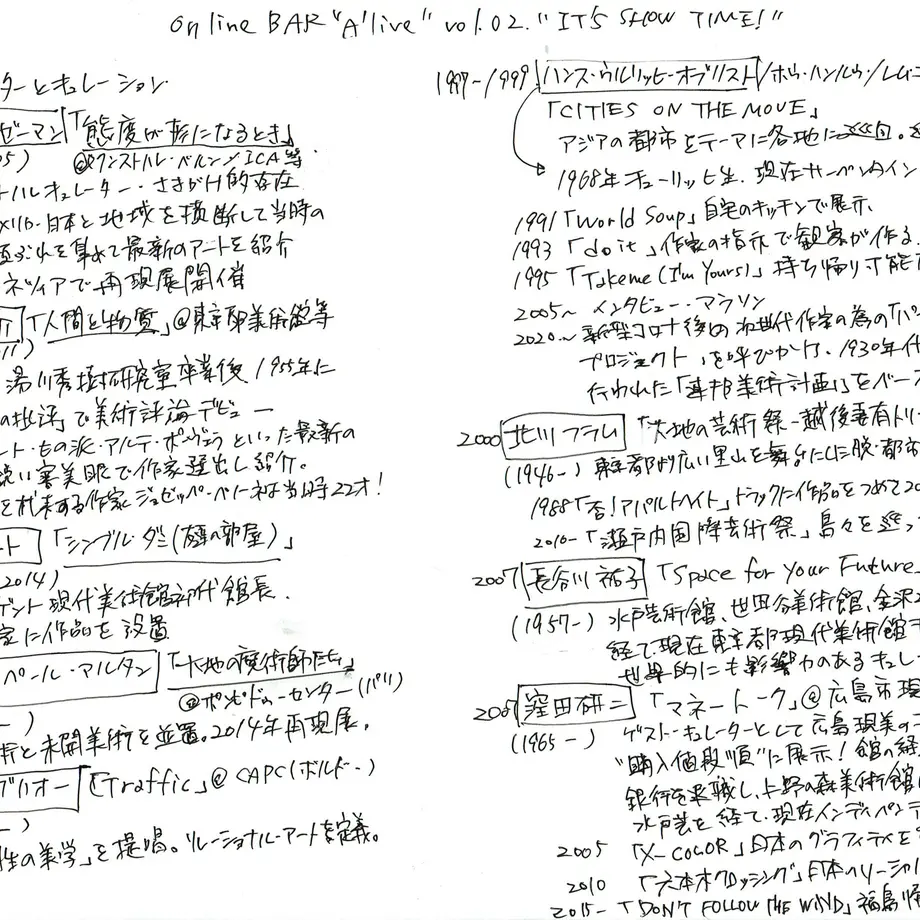 online BAR "A'live" vol.02. "IT'S SHOW TIME!"
ターとキュレーション
ゼーマン 「態度が形になるとき」
05) @クンストハレ・ベルン/ICA等.
キュレーター・さきがけ的存在
日本と地域を横断して当時の
を集めて最新のアートを紹介
ネツィアで再現展開催
介 「人間と物質」@東京都美術館等
11)
湯川秀樹研究室卒業後1955年に
の批評」で美術評論デビュー
ート・もの派・アルテ・ポーヴェラといった最新の
鋭い審美眼で作家選出し紹介。
する作家ジュゼッペ・ペノーネは当時22才!
ート 「シャンブル・ダミ(友達の部屋)」
2014)
ゲント現代美術館初代館長.
室に作品を設置
ベール・アルタン 「大地の魔術師たち」
@ポンピドゥーセンター(パリ)
術と未開美術を並置。2014年再現展.
ブリオー 「Traffic」@CAPC(ボルドー)
性の美学」を提唱。リレーショナル・アートを定義。
1997-1999 ハンス・ウルリッヒ・オブリスト/ホウ・ハンルゥ/
「CITIES ON THE MOVE」
アジアの都市をテーマに各地に巡回.
1968年チューリッヒ生. 現在サーペンタイン
1991「World Soup」自宅のキッチンで展示.
1993「do it」作家の指示で観客が作る.
1995「Take me (I'm Yours)」持ち帰り可能
2005~ インタビュー・マラソン
2020~ 新型コロナ後の次世代作家の為の「パ
プロジェクト」を呼びかけ、1930年代
行われた「連邦美術計画」をベー
2000 北川フラム 「大地の芸術祭-越後妻有トリ
(1946-) 東京都より広い里山を舞台にした脱・都市
1988「否!アパルトヘイト」トラックに作品をつめて20
2010-「瀬戸内国際芸術祭」島々を巡っ
2007 長谷川祐子 「Space for Your Future」
(1957-) 水戸芸術館、世田谷美術館、金沢2
経て現在東京都現代美術館
世界的にも影響力のあるキュレー
窪田研二 「マネートーク」@広島市現
(1965-) ゲスト・キュレーターとして広島現美の
"購入値段順"に展示! 館の経
銀行を退職し、上野の森美術館
水戸芸を経て、現在インディペンデ
2005 「X-COLOR」日本のグラフィティを
2010 「六本木クロッシング」日本のソーシャル
2015- 「DON'T FOLLOW THE WIND」福島